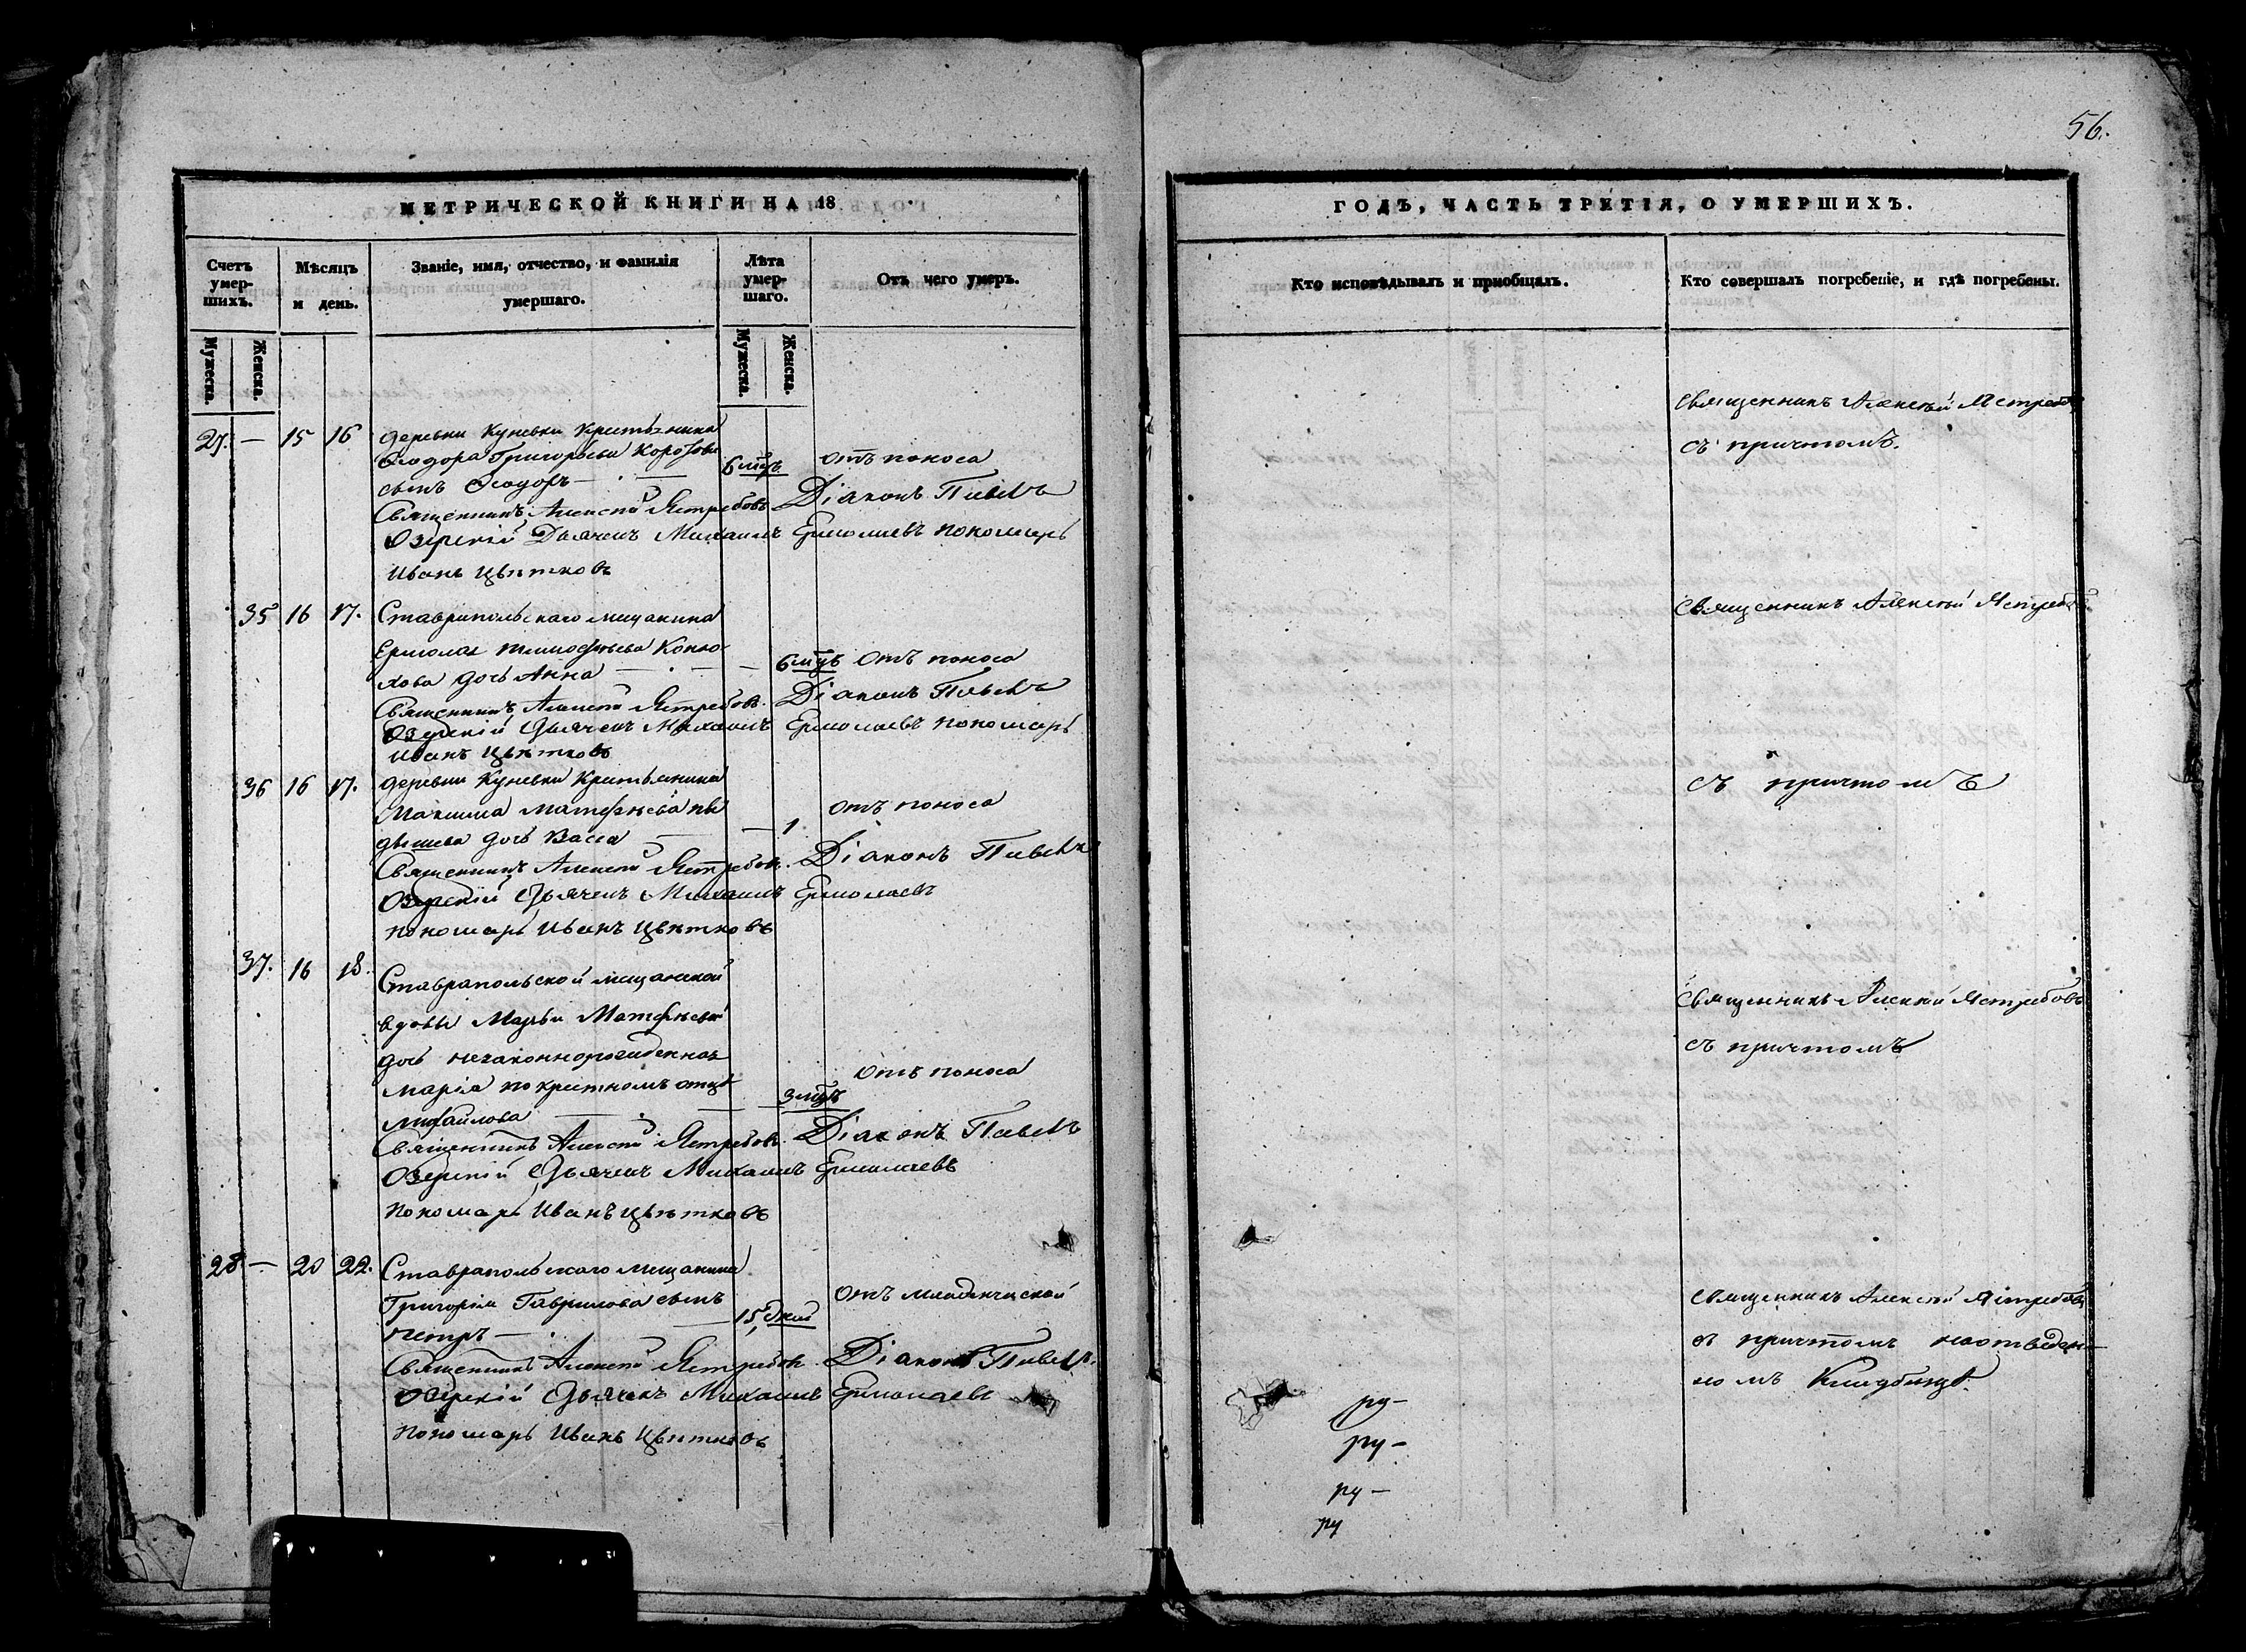 56.
МЕТРИЧЕСКОЙ КНИГИ НА 18
ГОДЪ, ЧАСТЬ ТРЕТІЯ, О УМЕРШИХЪ.
Счетъ умер-шихъ.
Мѣсяцъ и день.
Званіе, имя, отчество, и фамилія умершаго.
Лѣта умер-шаго.
Отъ чего умеръ.
Кто исповѣдывалъ и пріобщалъ.
Кто совершалъ погребеніе, и гдѣ погребены.
Мужеска.
Женска.
Мужеска.
Женска.
27. — 15 16 деревни Куневки Крестьянина
Ѳеодора Григорьева
сынъ Ѳеодоръ — 6 мцъ отъ поноса
Священникъ Алексѣй Ястребовъ Діаконъ Павелъ
Озерскій Дьячекъ Михаилъ Ермолаевъ пономарь
Иванъ Цвѣтковъ
Священникъ Алексѣй Ястребов
съ причтомъ.
35 16 17. Ставропольскаго мещанина
Ермолая Тимофѣева Коню-
хова дочь Анна — — 6 мцъ отъ поноса
Священникъ Алексѣй Ястребовъ. Діаконъ Павелъ
Озерскій Дьячекъ Михаилъ Ермолаевъ пономарь
Иванъ Цвѣтковъ
Священникъ Алексѣй Ястребов
36 16 17. деревни Куневки Крестьянина
Максима Матфѣева
дочь Васса — — 1 отъ поноса
Священникъ Алексѣй Ястребов. Діаконъ Павелъ
Озерскій Дьячекъ Михаилъ Ермолаевъ
пономарь Иванъ Цвѣтковъ
съ причтомъ
37. 16 18. Ставропольской мещанской
вдовы Марьи Матфѣевой
дочь незаконнорожденная
Марія по крестномъ отцѣ
Михайлова — — 3 мцъ отъ поноса
Священникъ Алексѣй Ястребов. Діаконъ Павелъ
Озерскій Дьячекъ Михаилъ Ермолаевъ
пономарь Иванъ Цвѣтковъ
Священникъ Алексѣй Ястребовъ
съ причтомъ
28 — 20 22. Ставропольскаго мещанина
Григорія Гаврилова сынъ
Петръ — 15 дней отъ младенческой
Священникъ Алексѣй Ястребов. Діаконъ Павелъ.
Озерскій Дьячекъ Михаилъ Ермолаевъ
пономарь Иванъ Цвѣтковъ
Священникъ Алексѣй Ястребовъ
съ причтомъ на отведен-
номъ Кладбищѣ.
ру-
ру -
ру -
ру